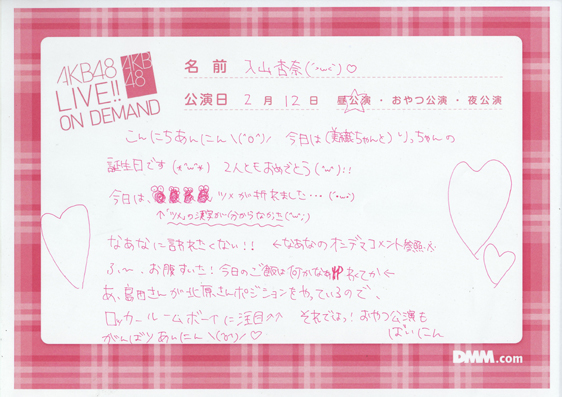 AKB48
LIVE!!
ON DEMAND
AKB
48
名前 入山杏奈(´･ω･`)♡
公演日 2月12日 昼公演・おやつ公演・夜公演
こんにちあんにん\(^o^)/ 今日は(美織ちゃんと)りっちゃんの
誕生日です(*´ω`*) 2人ともおめでとう(´ω`)!!
今日は、 ツメが折れました…(´･ω･`)
↑「ツメ」の漢字が分からなかた(´･ω･`;)
なあなに言われたくない!! ←なあなのオンデマコメント参照。
ふ〜、お腹すいた!今日のご飯は何かなぁ
あ、島田さんが北原さんポジションをやっているので、
ロッカールームボーイに注目↑↑ それではっ!おやつ公演も
がんばりあんにん\(^o^)/♡ ばいにん
DMM.com